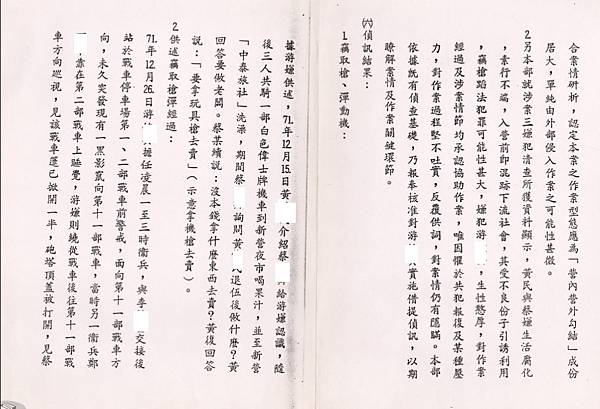 合案情研析，認定本案之作案型態應為「營內營外勾結」成份
居大，單純由外部侵入作案之可能性甚微。
2.另本部就涉案三嫌犯清查所獲資料顯示，黃民與蔡嫌生活腐化
，素行不端，入營前即混跡下流社會，其受不良份子引誘利用
，竊槍蹈法犯罪可能性甚大，嫌犯游，生性憨厚，對作案
經過及涉案情節均承認協助作案，唯因懼於共犯報復及某種壓
力，對作案過程堅不吐實，反覆供詞，對案情仍有隱瞞。本部
依據既有偵查基礎，乃報奉核准對游實施借提偵訊，以期
瞭解案情及作案關鍵環節。
㈥偵訊結果：
1.竊取槍、彈動機：
據游嫌供述，71年12月15日黃介紹蔡給游嫌認識，隨
後三人共騎一部白色偉士牌機車到新營夜市喝果汁，並至新營
「中泰旅社」洗澡，期間蔡詢問黃民退伍後做什麼？黃
回答要做老闆。蔡某續說：沒本錢拿什麼東西去賣？黃復回答
說：「要拿玩具槍去賣」（示意拿機槍去賣）。
2.供述竊取槍彈經過：
71年12月26日游擔任凌晨一至三時衛兵，與李交接後
站於戰車停車場第一、二部戰車前警戒，面向第十一部戰車方
向，未久突發現有一黑影竄向第十一部戰車，當時另一衛兵鄭
靠在第二部戰車上睡覺，游嫌則繞從戰車後往第十一部戰
車方向巡視，見該戰車蓬已掀開一半，砲塔頂蓋被打開，見蔡